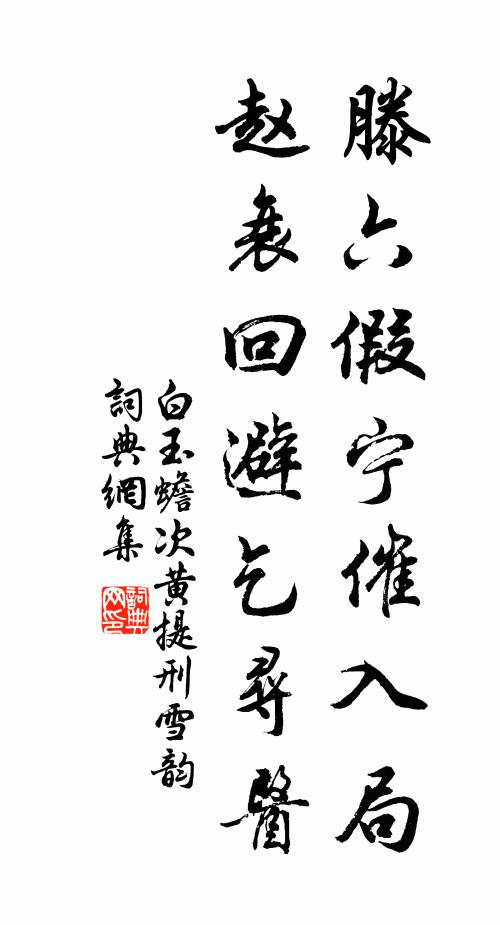 滕六假宁催入局
赵衰回避乞尋醫
白玉蟾次黄提刑雪韵
詞典網集
詞典网印